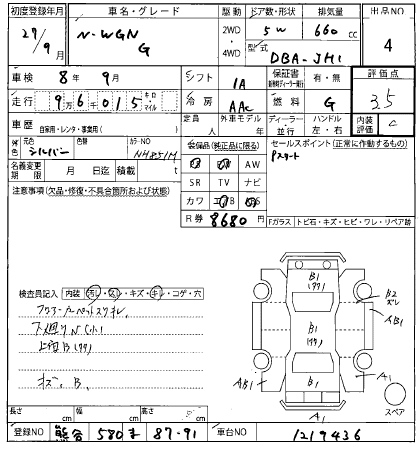 初度登録年月 27/9月
車名・グレード N-WGN G
駆動 2WD・4WD
ドア数・形状 5W
排気量 660cc
型式 DBA-JH1
出品NO 4
車検 8年9月
シフト IA
保証書 有・無
評価点 3.5
走行 96015 キロ・マイル
冷房 AAC
燃料 G
車歴 自家用・レンタ・事業用( )
定員 人
外車モデル 年
ディーラー・並行
ハンドル 左・右
内装評価 C
外色 元色 シルバー 色替 カラーNO NH851M
名義変更期限 月 日迄 積載 t
装備品(純正品に限る)
AW
SR TV ナビ
カワ
R券 8680円
セールスポイント(正常に作動するもの)
Pスタート
注意事項(欠品・修復・不具合箇所および状態)
Fガラス トビ石・キズ・ヒビ・ワレ・リペア跡
検査員記入 内装 汚レ・スレ・キズ・キレ・コゲ・穴
フロアーカーペットスリキレ
下廻りN(小)
上廻B(ワワ)
キズ、B、
B1
(ワワ)
B2
スレ
AB1
B1
(ワワ)
AB1
B1
A1
A1
スペア
長さ cm 幅 cm 高さ cm
登録NO 熊谷 580 ま 87-91
車台NO 1219436